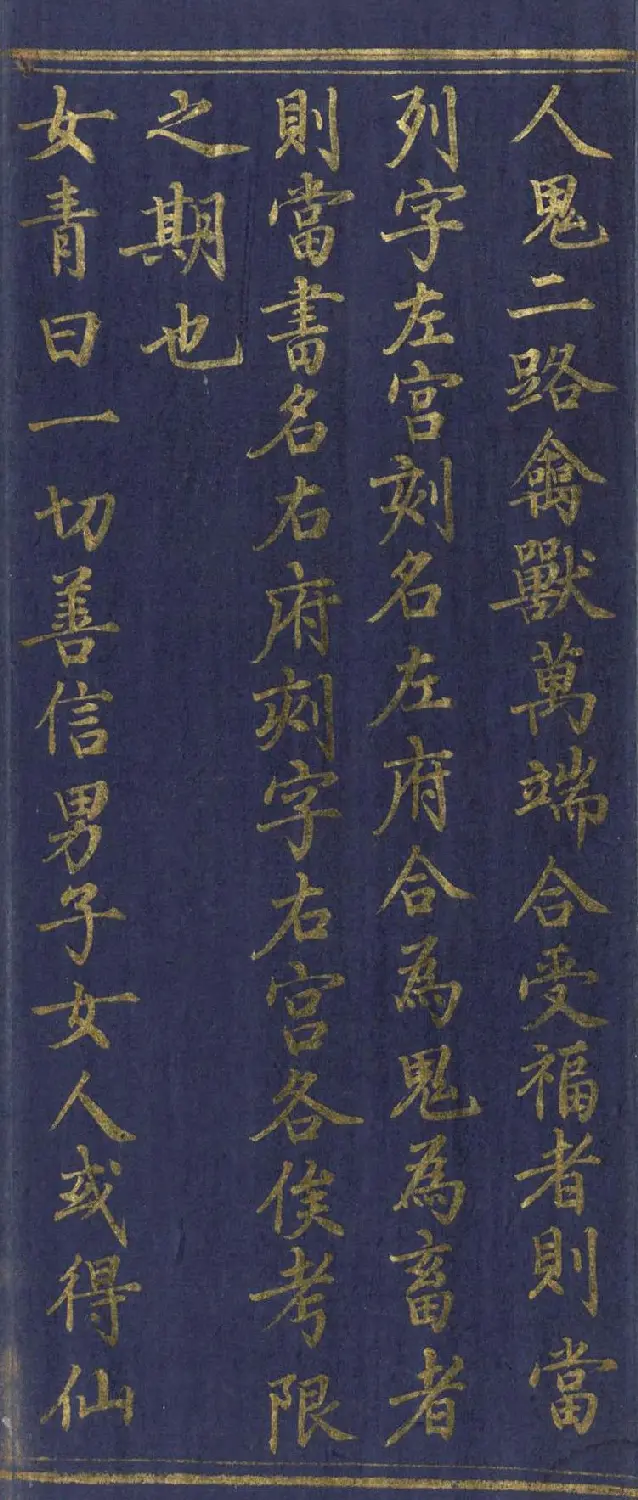 人鬼二路禽獸萬端合受福者則當
列字左宮刻名左府合為鬼為畜者
則當書名右府刻字右宮各俟考限
之期也
女青曰一切善信男子女人或得仙